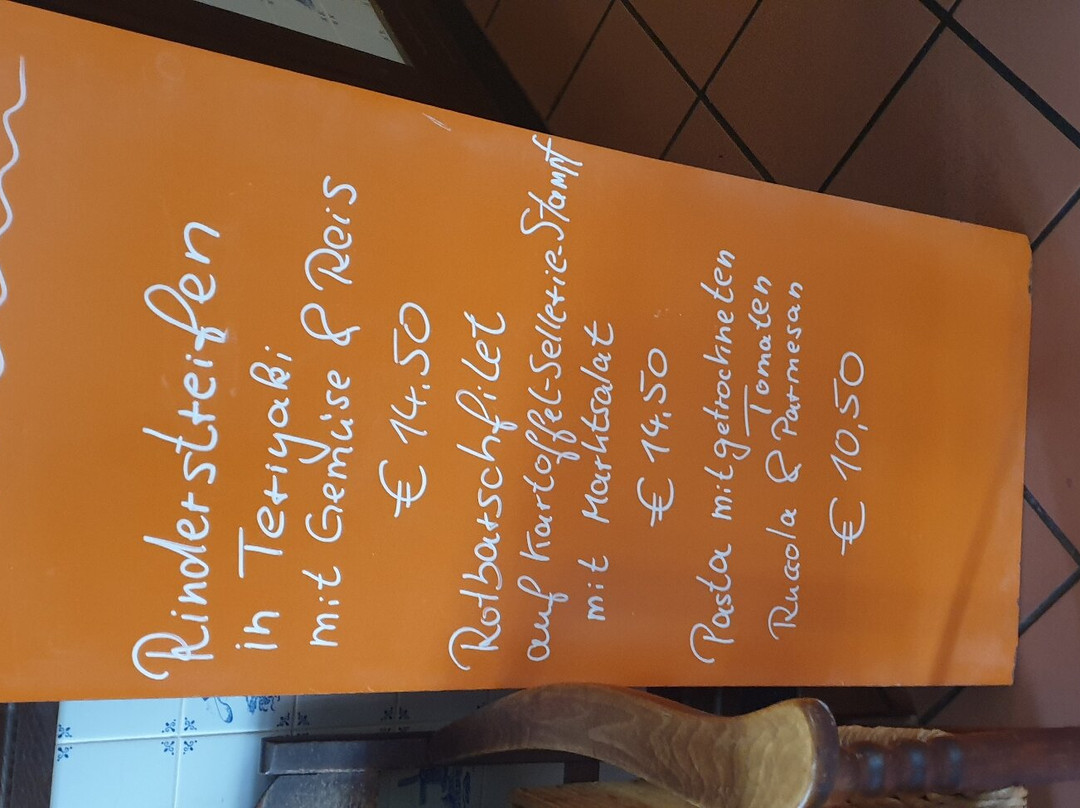 Rinderstreifen
in Teriyaki
mit Gemüse & Reis
€ 14.50
Rotbarschfilet
auf Kartoffel-Sellerie-Stampf
mit Marktsalat
€ 14.50
Pasta mit getrockneten
Tomaten
Rucola & Parmesan
€ 10,50